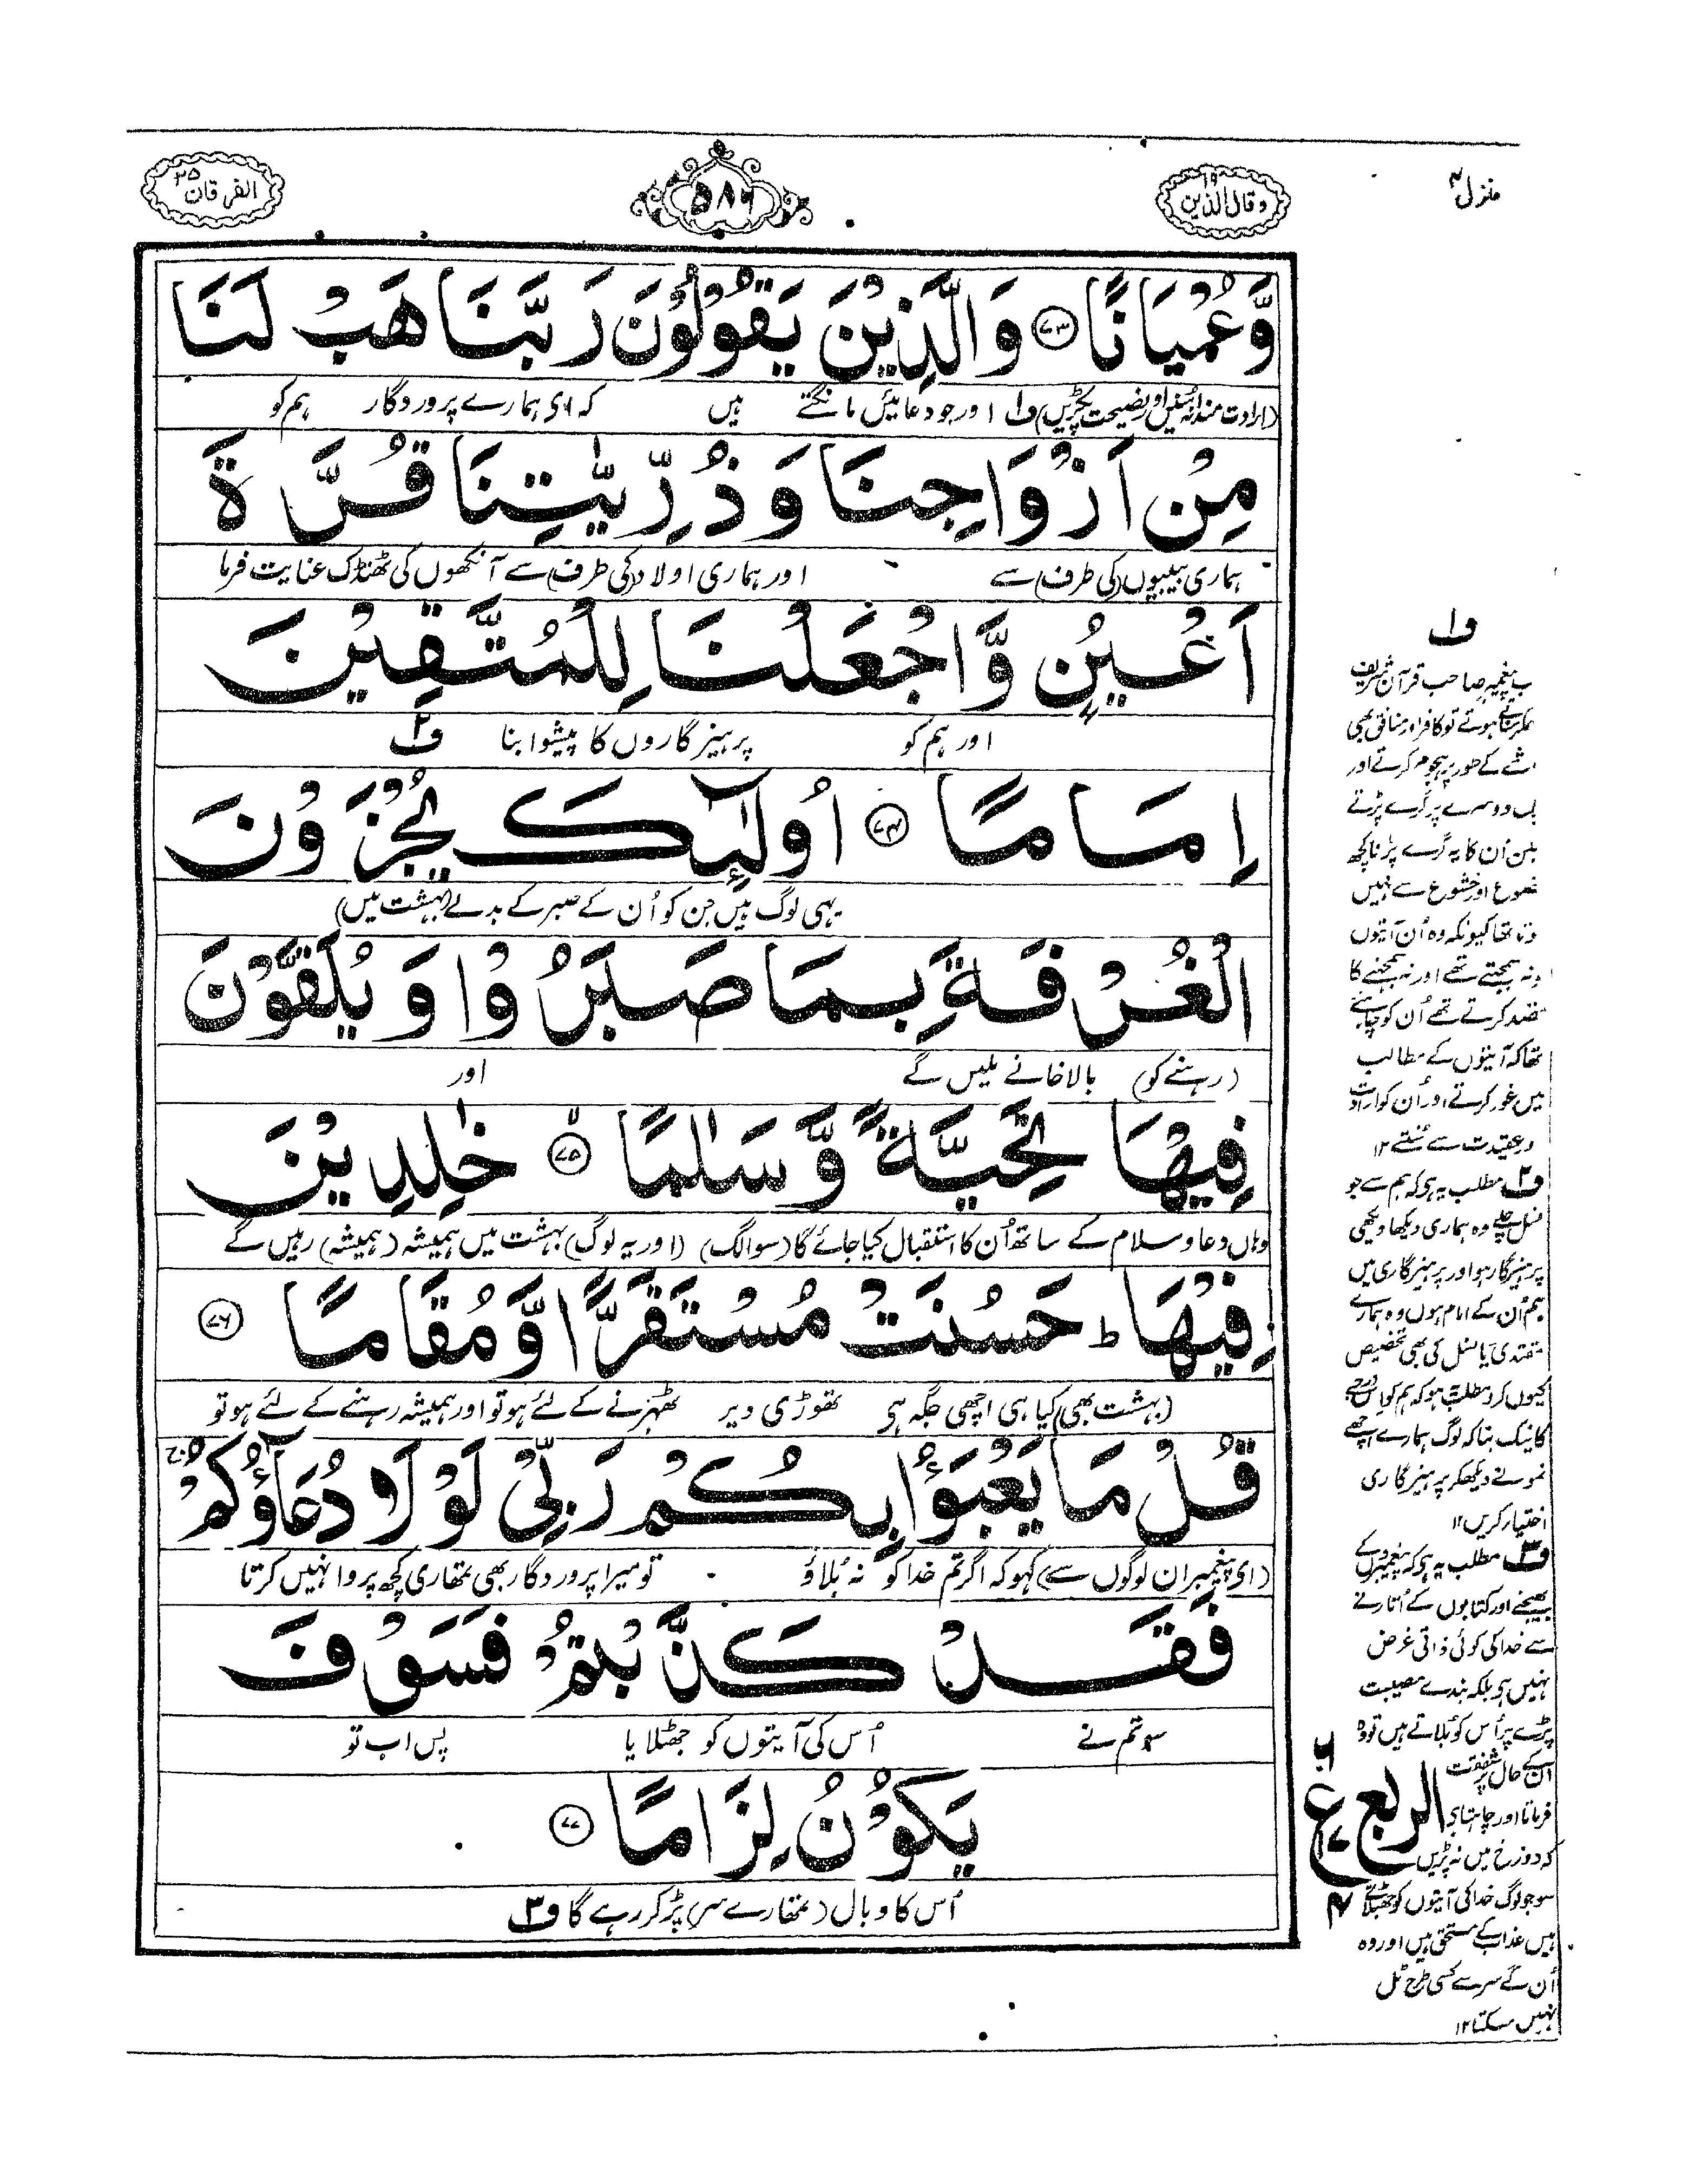 منزل ۴
وقال الذین ۱۹
۵۸۶
الفرقان ۲۵
وَّعُمْيَانًا ﴿۷۳﴾ وَالَّذِيْنَ يَقُوْلُوْنَ رَبَّنَا هَبْ لَنَا
(ارادت مندانہ سنیں اور نصیحت پکڑیں) ف۱ اور جو دعائیں مانگتے ہیں کہ ای ہمارے پروردگار ہم کو
مِنْ اَزْوَاجِنَا وَذُرِّيّٰتِنَا قُرَّةَ
ہماری بیبیوں (کی طرف) سے اور ہماری اولاد (کی طرف) سے آنکھوں کی ٹھنڈک عنایت فرما
اَعْيُنٍ وَّاجْعَلْنَا لِلْمُتَّقِيْنَ
اور ہم کو پرہیزگاروں کا پیشوا بنا ف۲
اِمَامًا ﴿۷۴﴾ اُولٰٓئِكَ يُجْزَوْنَ
یہی لوگ ہیں جن کو اُن کے صبر کے بدلے (بہشت میں)
الْغُرْفَةَ بِمَا صَبَرُوْا وَيُلَقَّوْنَ
(رہنے کو) بالاخانے ملیں گے اور
فِيْهَا تَحِيَّةً وَّسَلٰمًا ﴿۷۵﴾ خٰلِدِيْنَ
وہاں دعا و سلام کے ساتھ اُن کا استقبال کیا جائے گا (سو الگ) (اور یہ لوگ) بہشت میں ہمیشہ (ہمیشہ) رہیں گے
فِيْهَا ط حَسُنَتْ مُسْتَقَرًّا وَّمُقَامًا ﴿۷۶﴾
(بہشت بھی) کیا ہی اچھی جگہ ہی تھوڑی دیر ٹھہرنے کے لئے ہو تو اور ہمیشہ رہنے کے لئے ہو تو
قُلْ مَا يَعْبَؤُا بِكُمْ رَبِّيْ لَوْلَا دُعَآؤُكُمْ ج
(ای پیغمبر ان لوگوں سے) کہو کہ اگر تم خدا کو نہ بُلاؤ تو میرا پروردگار بھی تمھاری کچھ پروا نہیں کرتا
فَقَدْ كَذَّبْتُمْ فَسَوْفَ
سو تم نے اُس کی آیتوں کو جھٹلایا پس اب تو
يَكُوْنُ لِزَامًا ﴿۷۷﴾
اُس کا وبال (تمھارے سر) پڑ کر رہے گا ف۳
ف۱
پیغمبر صاحب قرآن شریف
سناتے ہوتے تو کافر اور منافق بھی
کے طور پر ہجوم کرتے اور
دوسرے پر گرے پڑتے
اُن کا یہ گرے پڑنا کچھ
خشوع سے نہیں
تھا کیونکہ وہ اُن آیتوں
نہ سمجھتے تھے اور نہ سمجھنے کا
قصد کرتے تھے اُن کو چاہئے
تھا کہ آیتوں کے مطالب
میں غور کرتے اور اُن کو ارادت
و عقیدت سے سُنتے ۱۲
ف۲ مطلب یہ ہی کہ ہم سے جو
نسل چلے وہ ہماری دیکھا دیکھی
پرہیزگار ہو اور پرہیزگاری میں
ہم اُن کے امام ہوں وہ ہمارے
مقتدی یا نسل کی بھی تخصیص
کیوں کرو مطلب یہ ہو کہ ہم کو اس درجے
کا نیک بنا کہ لوگ ہمارے اچھے
نمونے دیکھ کر پرہیزگاری
اختیار کریں ۱۲
ف۳ مطلب یہ ہی کہ پیغمبروں کے
بھیجنے اور کتابوں کے اُتارنے
سے خدا کی کوئی ذاتی غرض
نہیں ہی بلکہ بندے مصیبت
پڑے پر اُس کو بُلاتے ہیں تو وہ
اُن کے حال پر شفقت
فرماتا اور چاہتا ہی
کہ دوزخ میں نہ پڑیں
سو جو لوگ خدا کی آیتوں کو جھٹلاتے
ہیں عذاب کے مستحق ہیں اور وہ
اُن کے سر سے کسی طرح ٹل
نہیں سکتا ۱۲
الربع
۶
ع ۱۷
۴